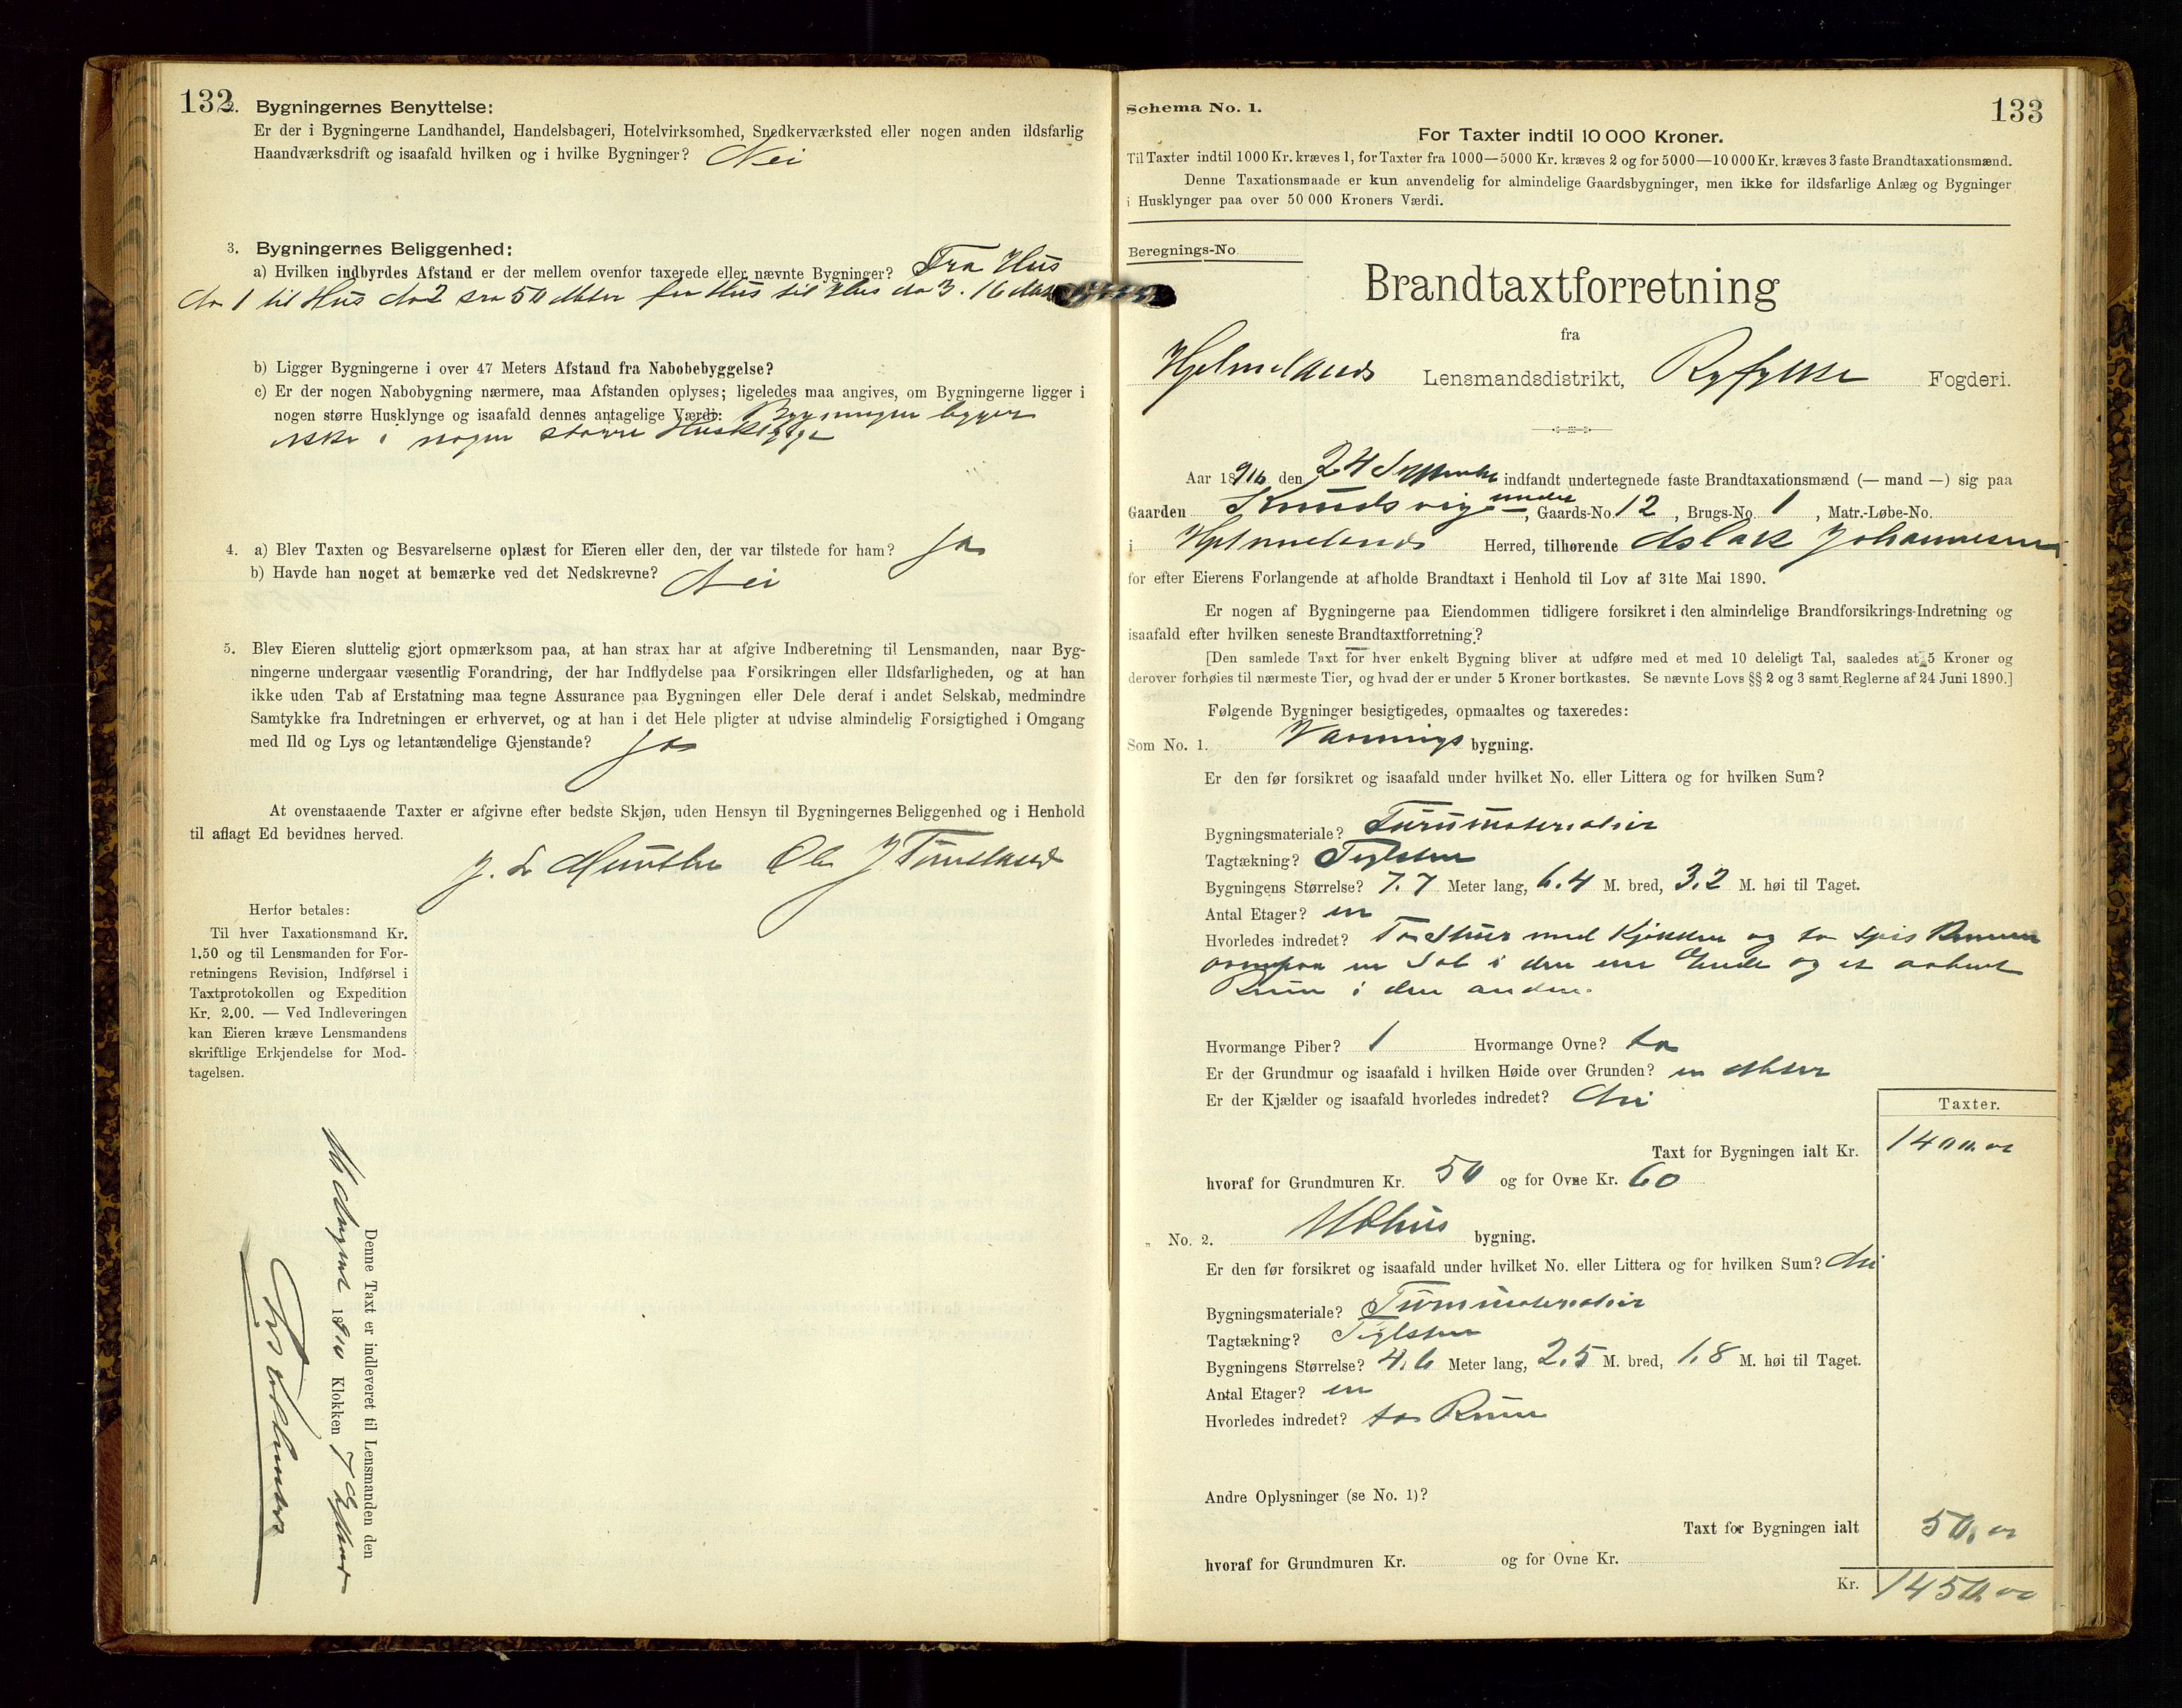 132
2. Bygningernes Benyttelse:
Er der i Bygningerne Landhandel, Handelsbageri, Hotelvirksomhed, Snedkerværksted eller nogen anden ildsfarlig
Haandværksdrift og isaafald hvilken og i hvilke Bygninger? Nei
3. Bygningernes Beliggenhed:
a) Hvilken indbyrdes Afstand er der mellem ovenfor taxerede eller nævnte Bygninger? Fra Hus
No 1 til Hus No 2 50 Meter fra Hus til Hus No 3. 16
b) Ligger Bygningerne i over 47 Meters Afstand fra Nabobebyggelse?
c) Er der nogen Nabobygning nærmere, maa Afstanden oplyses; ligeledes maa angives, om Bygningerne ligger i
nogen større Husklynge og isaafald dennes antagelige Værdi: Bygningen ligger
ikke i nogen større Husklynge
4. a) Blev Taxten og Besvarelserne oplæst for Eieren eller den, der var tilstede for ham? Ja
b) Havde han noget at bemærke ved det Nedskrevne? Nei
5. Blev Eieren sluttelig gjort opmærksom paa, at han strax har at afgive Indberetning til Lensmanden, naar Byg-
ningerne undergaar væsentlig Forandring, der har Indflydelse paa Forsikringen eller Ildsfarligheden, og at han
ikke uden Tab af Erstatning maa tegne Assurance paa Bygningen eller Dele deraf i andet Selskab, medmindre
Samtykke fra Indretningen er erhvervet, og at han i det Hele pligter at udvise almindelig Forsigtighed i Omgang
med Ild og Lys og letantændelige Gjenstande? Ja
At ovenstaaende Taxter er afgivne efter bedste Skjøn, uden Hensyn til Bygningernes Beliggenhed og i Henhold
til aflagt Ed bevidnes herved.
J. L Munthe Ole J Tuntland
Herfor betales:
Til hver Taxationsmand Kr.
1.50 og til Lensmanden for For-
retningens Revision, Indførsel i
Taxtprotokollen og Expedition
Kr. 2.00. — Ved Indleveringen
kan Eieren kræve Lensmandens
skriftlige Erkjendelse for Mod-
tagelsen.
Denne Taxt er indleveret til Lensmanden den
August 18 Klokken 7
Schema No. 1.
133
For Taxter indtil 10 000 Kroner.
Til Taxter indtil 1000 Kr. kræves 1, for Taxter fra 1000—5000 Kr. kræves 2 og for 5000—10 000 Kr. kræves 3 faste Brandtaxationsmænd.
Denne Taxationsmaade er kun anvendelig for almindelige Gaardsbygninger, men ikke for ildsfarlige Anlæg og Bygninger
i Husklynger paa over 50 000 Kroners Værdi.
Beregnings-No
Brandtaxtforretning
fra
Hjelmelands Lensmandsdistrikt, Ryfylke Fogderi.
Aar 18 den 24 September indfandt undertegnede faste Brandtaxationsmænd (— mand —) sig paa
Gaarden Knudsvig under, Gaards-No. 12, Brugs-No. 1, Matr.-Løbe-No.
i Hjelmelands Herred, tilhørende Aslak Johannesen
for efter Eierens Forlangende at afholde Brandtaxt i Henhold til Lov af 31te Mai 1890.
Er nogen af Bygningerne paa Eiendommen tidligere forsikret i den almindelige Brandforsikrings-Indretning og
isaafald efter hvilken seneste Brandtaxtforretning?
[Den samlede Taxt for hver enkelt Bygning bliver at udføre med et med 10 deleligt Tal, saaledes at 5 Kroner og
derover forhøies til nærmeste Tier, og hvad der er under 5 Kroner bortkastes. Se nævnte Lovs §§ 2 og 3 samt Reglerne af 24 Juni 1890.]
Følgende Bygninger besigtigedes, opmaaltes og taxeredes:
Som No. 1. Vaanings bygning.
Er den før forsikret og isaafald under hvilket No. eller Littera og for hvilken Sum?
Bygningsmateriale? Furumaterialier
Tagtækning? Teglsten
Bygningens Størrelse? 7.7 Meter lang, 6.4 M. bred, 3.2 M. høi til Taget.
Antal Etager? en
Hvorledes indredet? To Stuer med Kjøkken og to Spis
ovenpaa en Sal i den ene Ende og et aabent
Rum i den anden.
Hvormange Piber? 1 Hvormange Ovne? to
Er der Grundmur og isaafald i hvilken Høide over Grunden? en Meter
Er der Kjælder og isaafald hvorledes indredet? Nei
Taxter.
Taxt for Bygningen ialt Kr. 1400.00
hvoraf for Grundmuren Kr. 50 og for Ovne Kr. 60
„ No. 2. Udhus bygning.
Er den før forsikret og isaafald under hvilket No. eller Littera og for hvilken Sum? Nei
Bygningsmateriale? Furumaterialier
Tagtækning? Teglsten
Bygningens Størrelse? 4.6 Meter lang, 2.5 M. bred, 1.8 M. høi til Taget.
Antal Etager? en
Hvorledes indredet? to Rum
Andre Oplysninger (se No. 1)?
Taxt for Bygningen ialt 50.00
hvoraf for Grundmuren Kr. og for Ovne Kr.
Kr. 1450.00